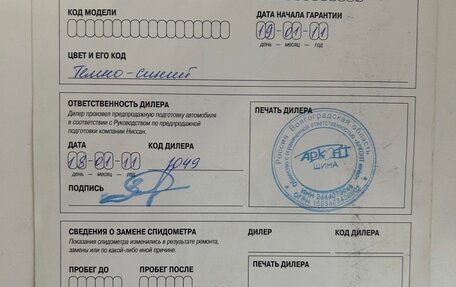 КОД МОДЕЛИ
ДАТА НАЧАЛА ГАРАНТИИ
19-01-11
день — месяц — год
ЦВЕТ И ЕГО КОД
Темно-синий
ОТВЕТСТВЕННОСТЬ ДИЛЕРА
Дилер произвел предпродажную подготовку автомобиля
в соответствии с Руководством по предпродажной
подготовки компании Ниссан.
ДАТА
КОД ДИЛЕРА
18-01-11
1049
день — месяц — год
ПОДПИСЬ
ПЕЧАТЬ ДИЛЕРА
Россия Волгоградская область
ШИНА
СВЕДЕНИЯ О ЗАМЕНЕ СПИДОМЕТРА
Показания спидометра изменились в результате ремонта,
замены или по какой-либо иной причине.
ДИЛЕР
КОД ДИЛЕРА
ПРОБЕГ ДО
ПРОБЕГ ПОСЛЕ
ПЕЧАТЬ ДИЛЕРА